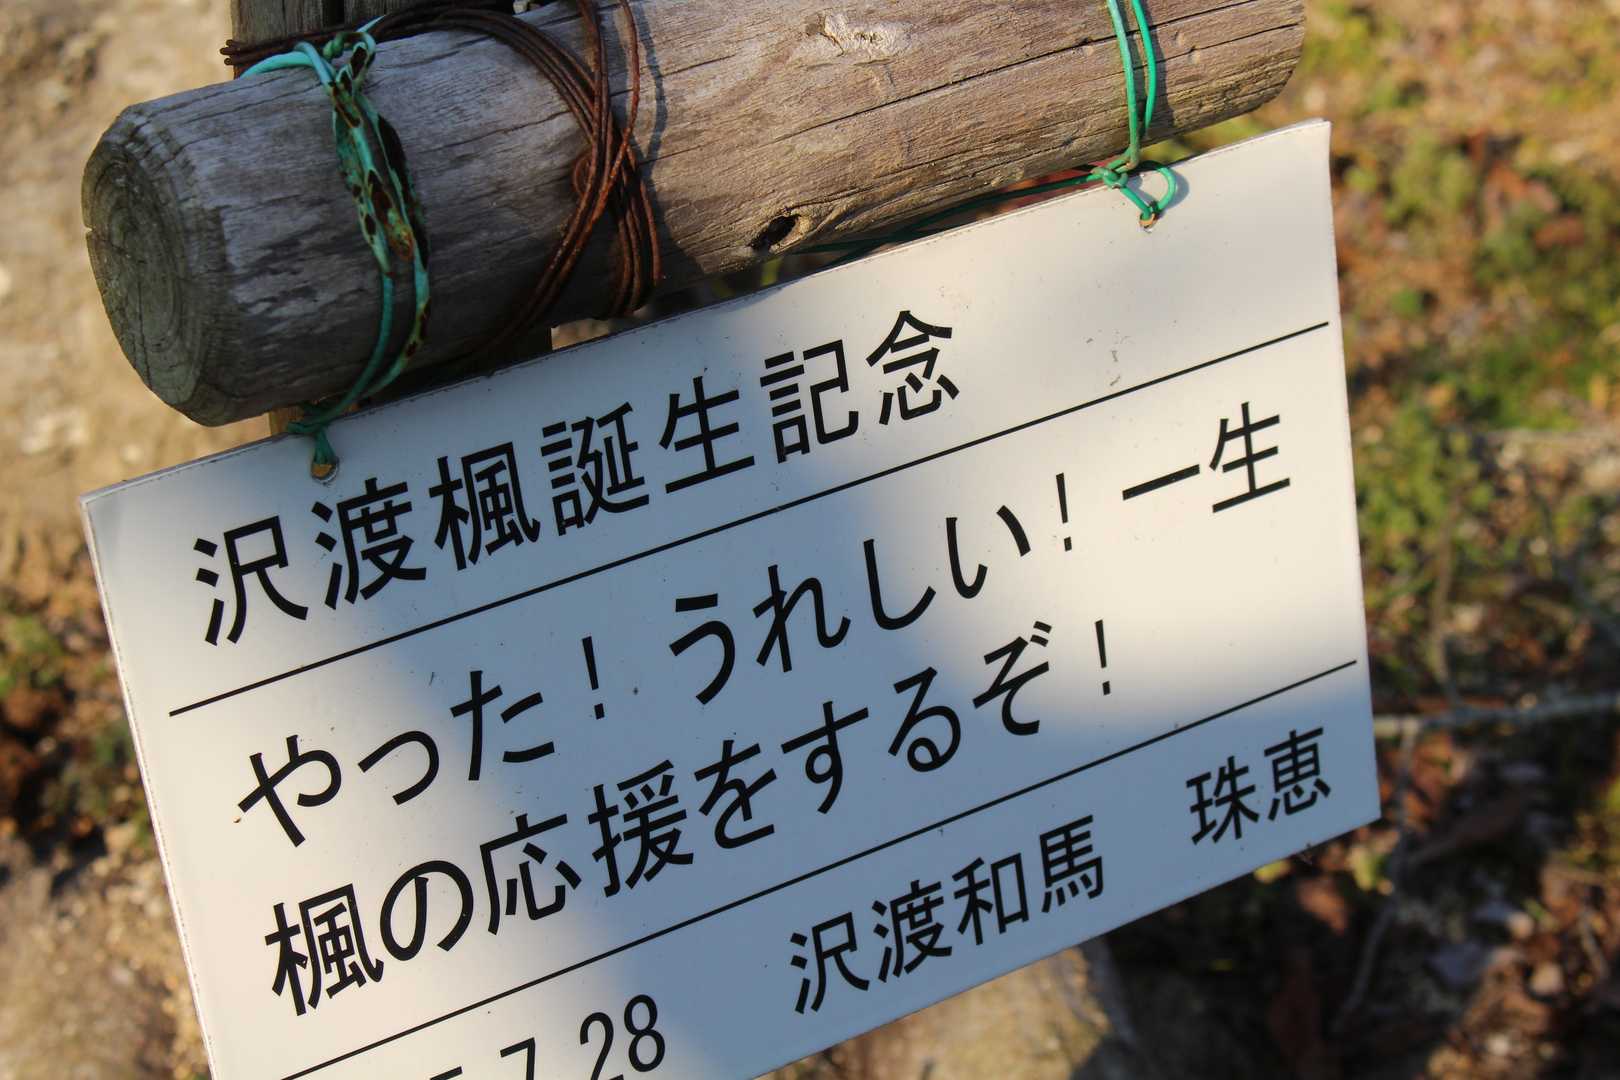 沢渡楓誕生記念
やった！うれしい！一生
楓の応援をするぞ！
7.28 沢渡和馬 珠恵